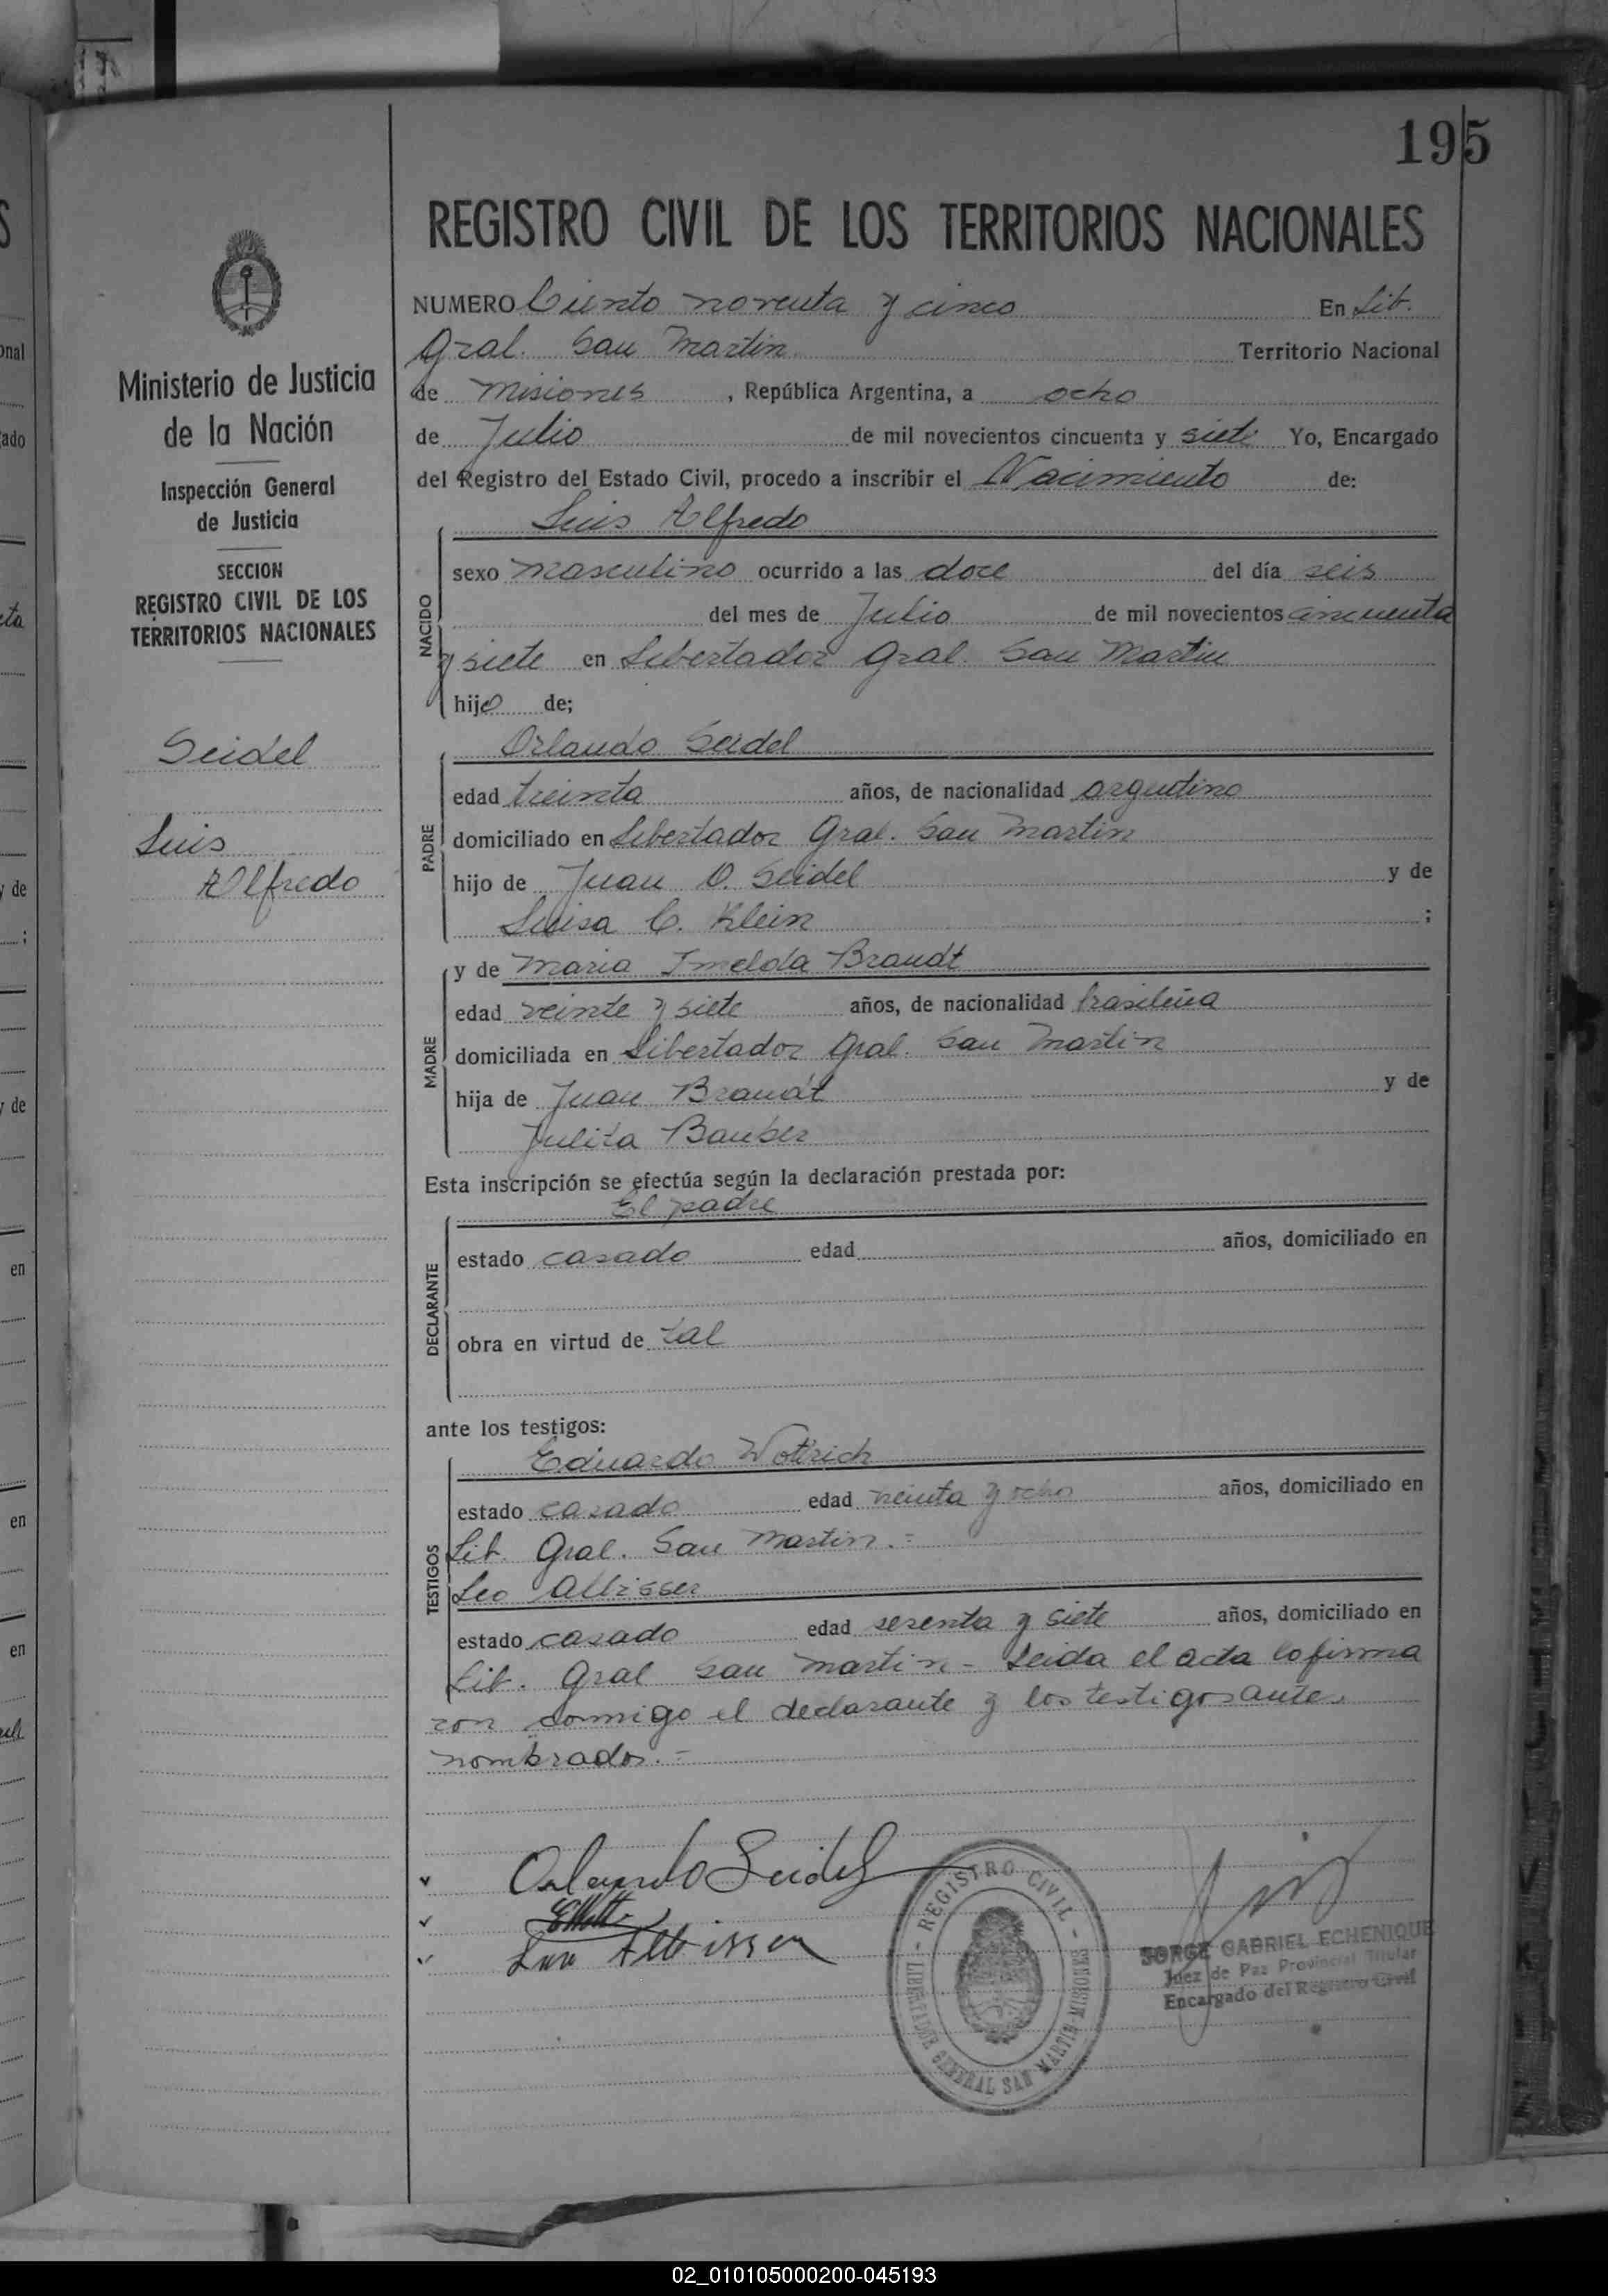 195
REGISTRO CIVIL DE LOS TERRITORIOS NACIONALES
NUMERO Ciento noventa y cinco En Lib.
Gral. San Martin Territorio Nacional
de Misiones, República Argentina, a ocho
de Julio de mil novecientos cincuenta y siete Yo, Encargado
del Registro del Estado Civil, procedo a inscribir el Nacimiento de:
Luis Alfredo
NACIDO
sexo masculino ocurrido a las doce del día seis
del mes de Julio de mil novecientos cincuenta
y siete en Libertador Gral. San Martin
hijo de;
Orlando Seidel
PADRE
edad treinta años, de nacionalidad argentino
domiciliado en Libertador Gral. San Martin
hijo de Juan O. Seidel y de
Luisa C. Klein ;
MADRE
y de Maria Imelda Brandt
edad veinte y siete años, de nacionalidad brasileña
domiciliada en Libertador Gral. San Martin
hija de Juan Brandt y de
Julita
Esta inscripción se efectúa según la declaración prestada por:
El padre
DECLARANTE
estado casado edad años, domiciliado en
obra en virtud de tal
ante los testigos:
TESTIGOS
Eduardo Wottrich
estado casado edad y ocho años, domiciliado en
Lib. Gral. San Martin.=
Leo Albisser
estado casado edad sesenta y siete años, domiciliado en
Lib. Gral San Martin - Leida el acta la firma
ron conmigo el declarante y los testigos antes
nombrados.=
Orlando Seidel
Leo Albisser
REGISTRO CIVIL
LIBERTADOR GENERAL SAN MARTIN MISIONES
JORGE GABRIEL ECHENIQUE
Juez de Paz Provincial Titular
Encargado del Registro Civil
Ministerio de Justicia
de la Nación
Inspección General
de Justicia
SECCION
REGISTRO CIVIL DE LOS
TERRITORIOS NACIONALES
Seidel
Luis
Alfredo
onal
ado
y de
;
y de
en
en
en
02_010105000200-045193